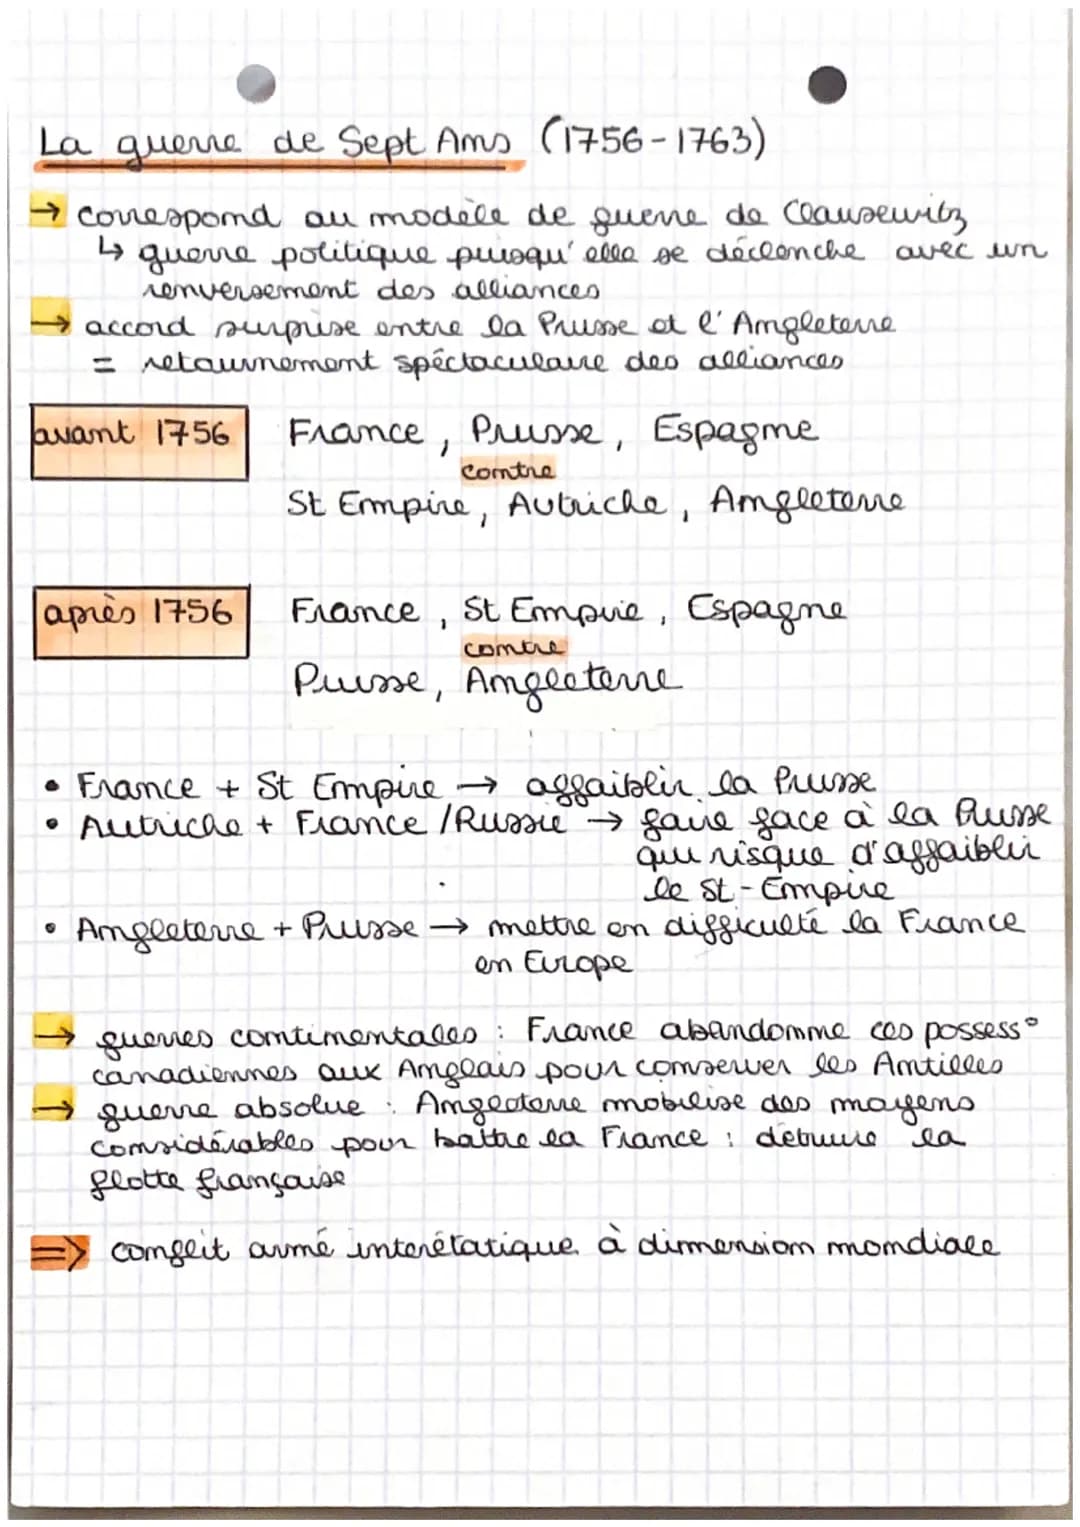 La guerre de Sept Ans (1756-1763)
→ correspond au modèle de guerre de Clausewitz
↳ guerre politique puisqu'elle se déclenche avec un
renversement des alliances
→ accord surprise entre la Prusse et l'Angleterre
= retournement spéctaculaire des alliances
avant 1756
France, Prusse, Espagne
contre
St Empire, Autriche, Angleterre
après 1756
France, St Empire, Espagne
contre
Prusse, Angleterre
• France + St Empire → affaiblir la Prusse
• Autriche + France / Russie → faire face à la Prusse
qui risque d'affaiblir
le St-Empire
• Angleterre + Prusse → mettre en difficulté la France
en Europe
→ guerres continentales : France abandonne ces possess°
canadiennes aux Anglais pour conserver les Antilles
→ guerre absolue : Angleterre mobilise des moyens
considérables pour battre la France : détruire la
flotte française
=> conflit armé interétatique à dimension mondiale